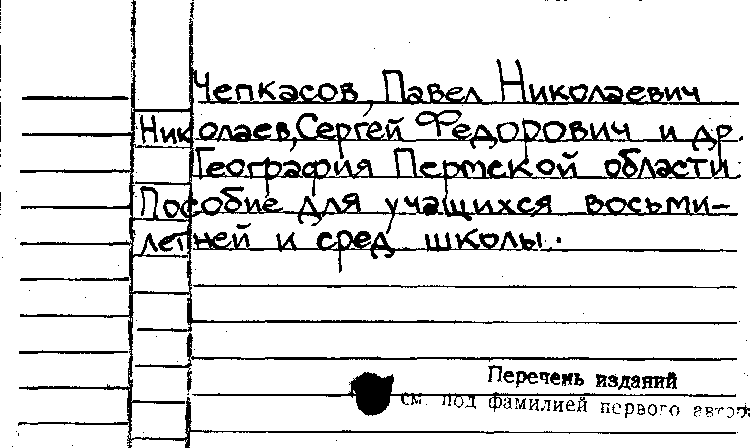 Чепкасов, Павел Николаевич
Николаев, Сергей Федорович и др.
География Пермской области.
Пособие для учащихся восьми-
летней и сред школы.
Перечень изданий
см. под фамилией первого автора